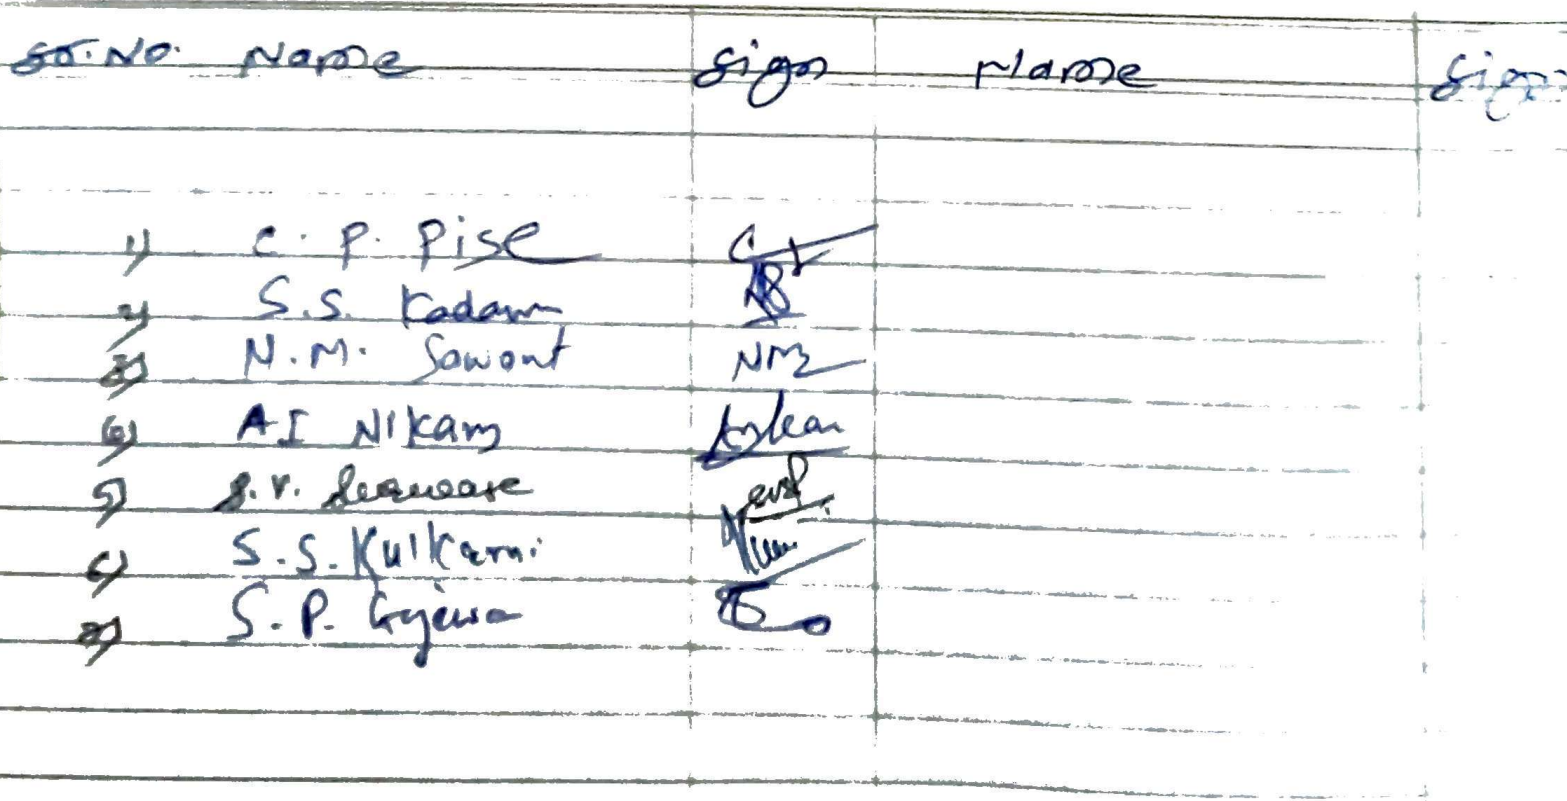 Sr. No. Name Sign Name Sign
1) C. P. Pise
2) S.S. Kadam
3) N. M. Sawant NM
4) A I Nikam
5) S. V.
6) S. S. Kulkarni
7) S. P.